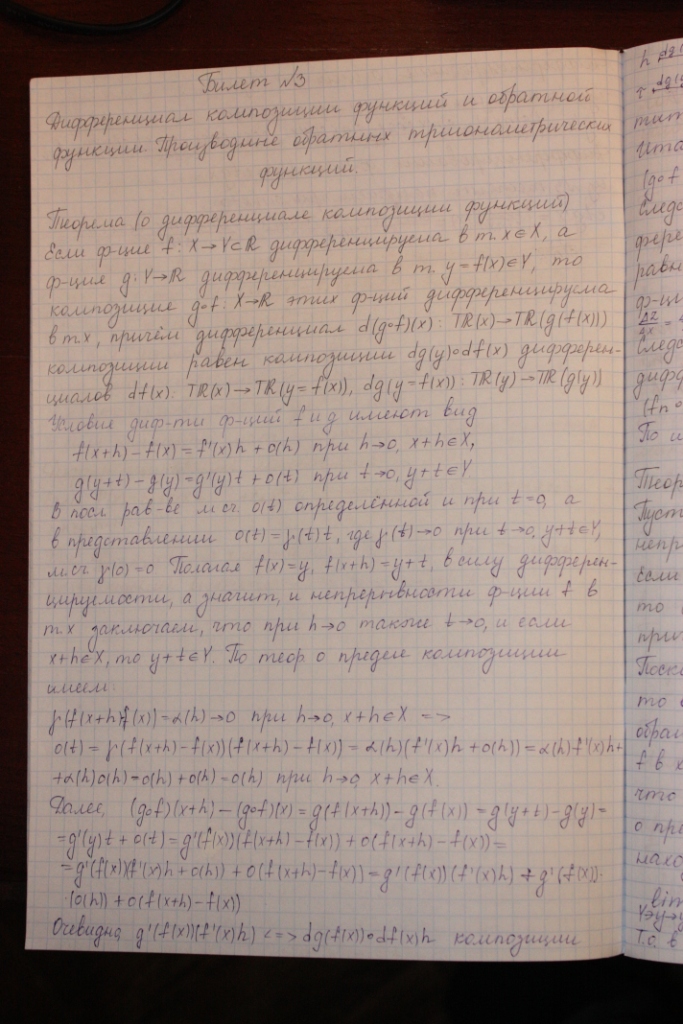 Билет №3
Дифференциал композиции функций и обратной
функции. Производные обратных тригонометрических
функций.
Теорема (о дифференциале композиции функций)
Если ф-ция f: X→Y⊂ℝ дифференцируема в т. x∈X, а
ф-ция g: Y→ℝ дифференцируема в т. y=f(x)∈Y, то
композиция g∘f: X→ℝ этих ф-ций дифференцируема
в т. x, причём дифференциал d(g∘f)(x): Tℝ(x)→Tℝ(g(f(x)))
композиции равен композиции dg(y)∘df(x) дифферен-
циалов df(x): Tℝ(x)→Tℝ(y=f(x)), dg(y=f(x)): Tℝ(y)→Tℝ(g(y))
Условия диф-ти ф-ций f и g имеют вид
f(x+h)-f(x)=f'(x)h+o(h) при h→0, x+h∈X,
g(y+t)-g(y)=g'(y)t+o(t) при t→0, y+t∈Y
В посл рав-ве м.сч. o(t) определённой и при t=0, а
в представлении o(t)=γ(t)t, где γ(t)→0 при t→0, y+t∈Y,
м.сч γ(0)=0 Полагая f(x)=y, f(x+h)=y+t, в силу дифферен-
цируемости, а значит, и непрерывности ф-ции f в
т. x заключаем, что при h→0 также t→0, и если
x+h∈X, то y+t∈Y. По теор. о пределе композиции
имеем:
γ(f(x+h)-f(x))=α(h)→0 при h→0, x+h∈X =>
o(t)=γ(f(x+h)-f(x))(f(x+h)-f(x))=α(h)(f'(x)h+o(h))=α(h)f'(x)h+
+α(h)o(h)=o(h)+o(h)=o(h) при h→0, x+h∈X.
Далее, (g∘f)(x+h)-(g∘f)(x)=g(f(x+h))-g(f(x))=g(y+t)-g(y)=
=g'(y)t+o(t)=g'(f(x))(f(x+h)-f(x))+o(f(x+h)-f(x))=
=g'(f(x))(f'(x)h+o(h))+o(f(x+h)-f(x))=g'(f(x))(f'(x)h)+g'(f(x))·
(o(h))+o(f(x+h)-f(x))
Очевидна g'(f(x))(f'(x)h) <=> dg(f(x))∘df(x)h композиции